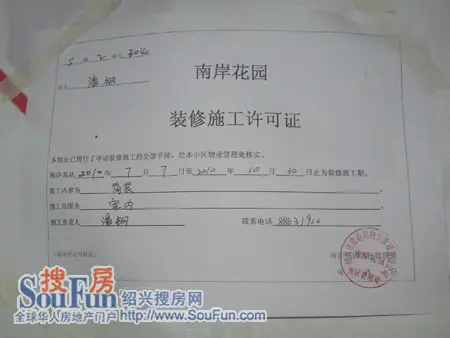 5 幢 2 单元 304
业主 潘钢
南岸花园
装修施工许可证
本物业已履行了申请装修施工的全部手续，经本小区物业管理处核实，
准许其从2010年 7 月 7 日至2010 年 10 月 30日止为装修施工期。
施工内容为 简装
施工范围为 室内
施工负责人 潘钢 联系电话 88631910
年 月 日
搜房
SouFun 绍兴搜房网
全球华人房地产门户 www.SouFun.com